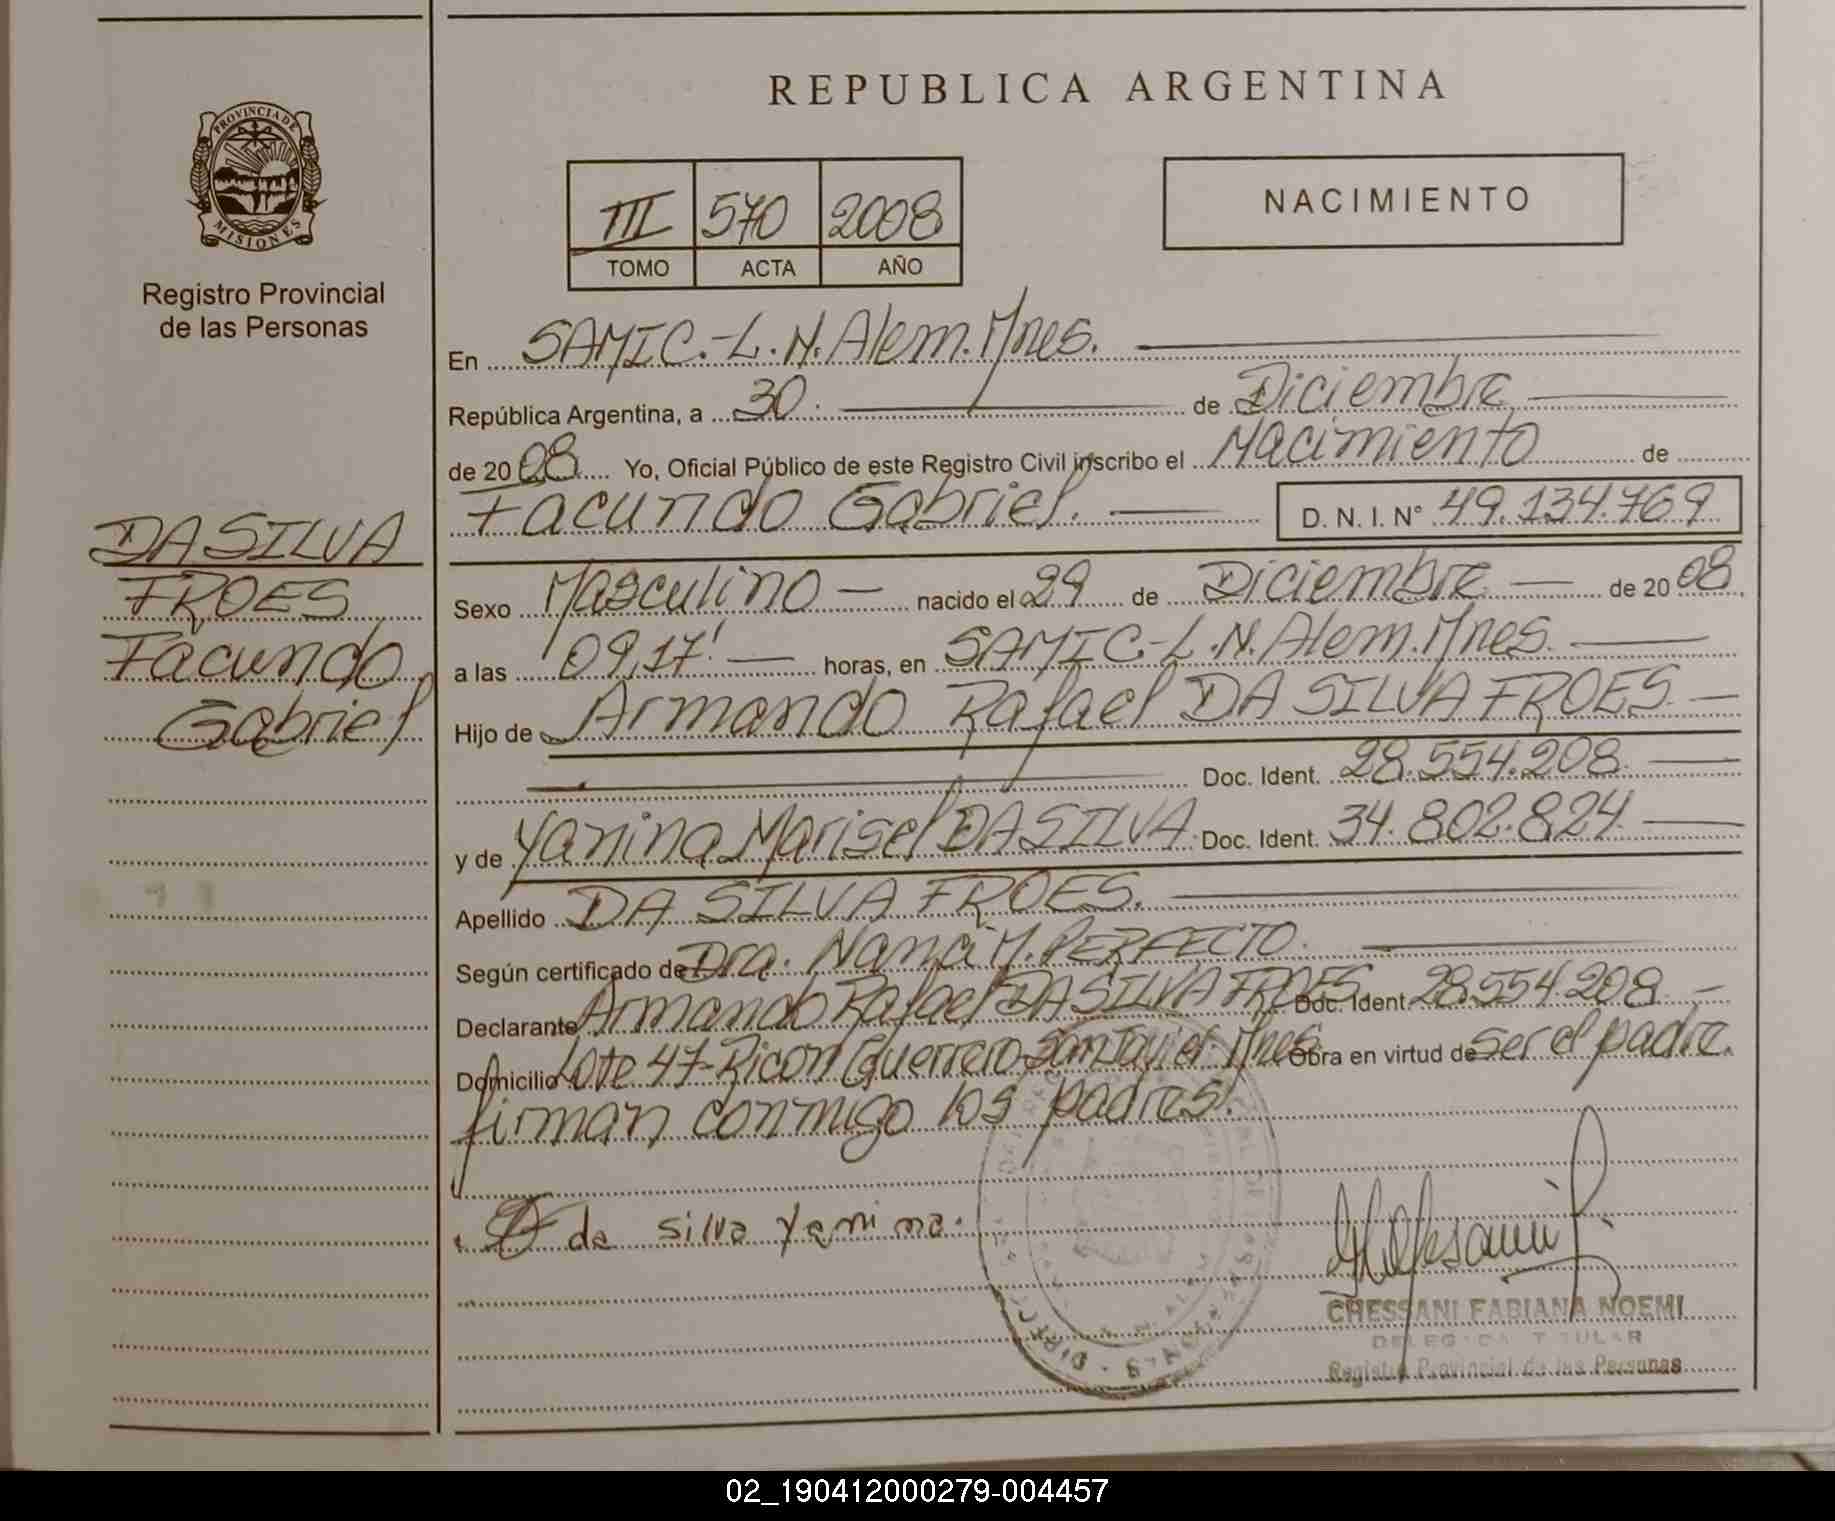 REPUBLICA ARGENTINA
PROVINCIA DE
MISIONES
Registro Provincial
de las Personas
III 570 2008
TOMO ACTA AÑO
NACIMIENTO
En SAMIC.-L.N.Alem.Mnes.
República Argentina, a 30. de Diciembre
de 2008 Yo, Oficial Público de este Registro Civil inscribo el Nacimiento de
Facundo Gabriel. D. N. I. N° 49.134.769
DA SILVA
FROES
Facundo
Gabriel
Sexo Masculino nacido el 29 de Diciembre de 2008.
a las 09,17' horas, en SAMIC-L.N.Alem.Mnes.
Hijo de Armando Rafael DA SILVA FROES.
Doc. Ident. 28.554.208.
y de Yanina Marisel DA SILVA. Doc. Ident. 34.802.824.
Apellido DA SILVA FROES.
Según certificado de Dra. Nanci M. PERFECTO.
Declarante Armando Rafael DA SILVA FROES Doc. Ident. 28.554.208
Domicilio Lote 47-Ricon Guerrero-San Javier. Mnes. Obra en virtud de ser el padre.
firman conmigo los padres.
da silva Yanina.
CHESSANI FABIANA NOEMI
DELEGADA TITULAR
Registro Provincial de las Personas
02_190412000279-004457